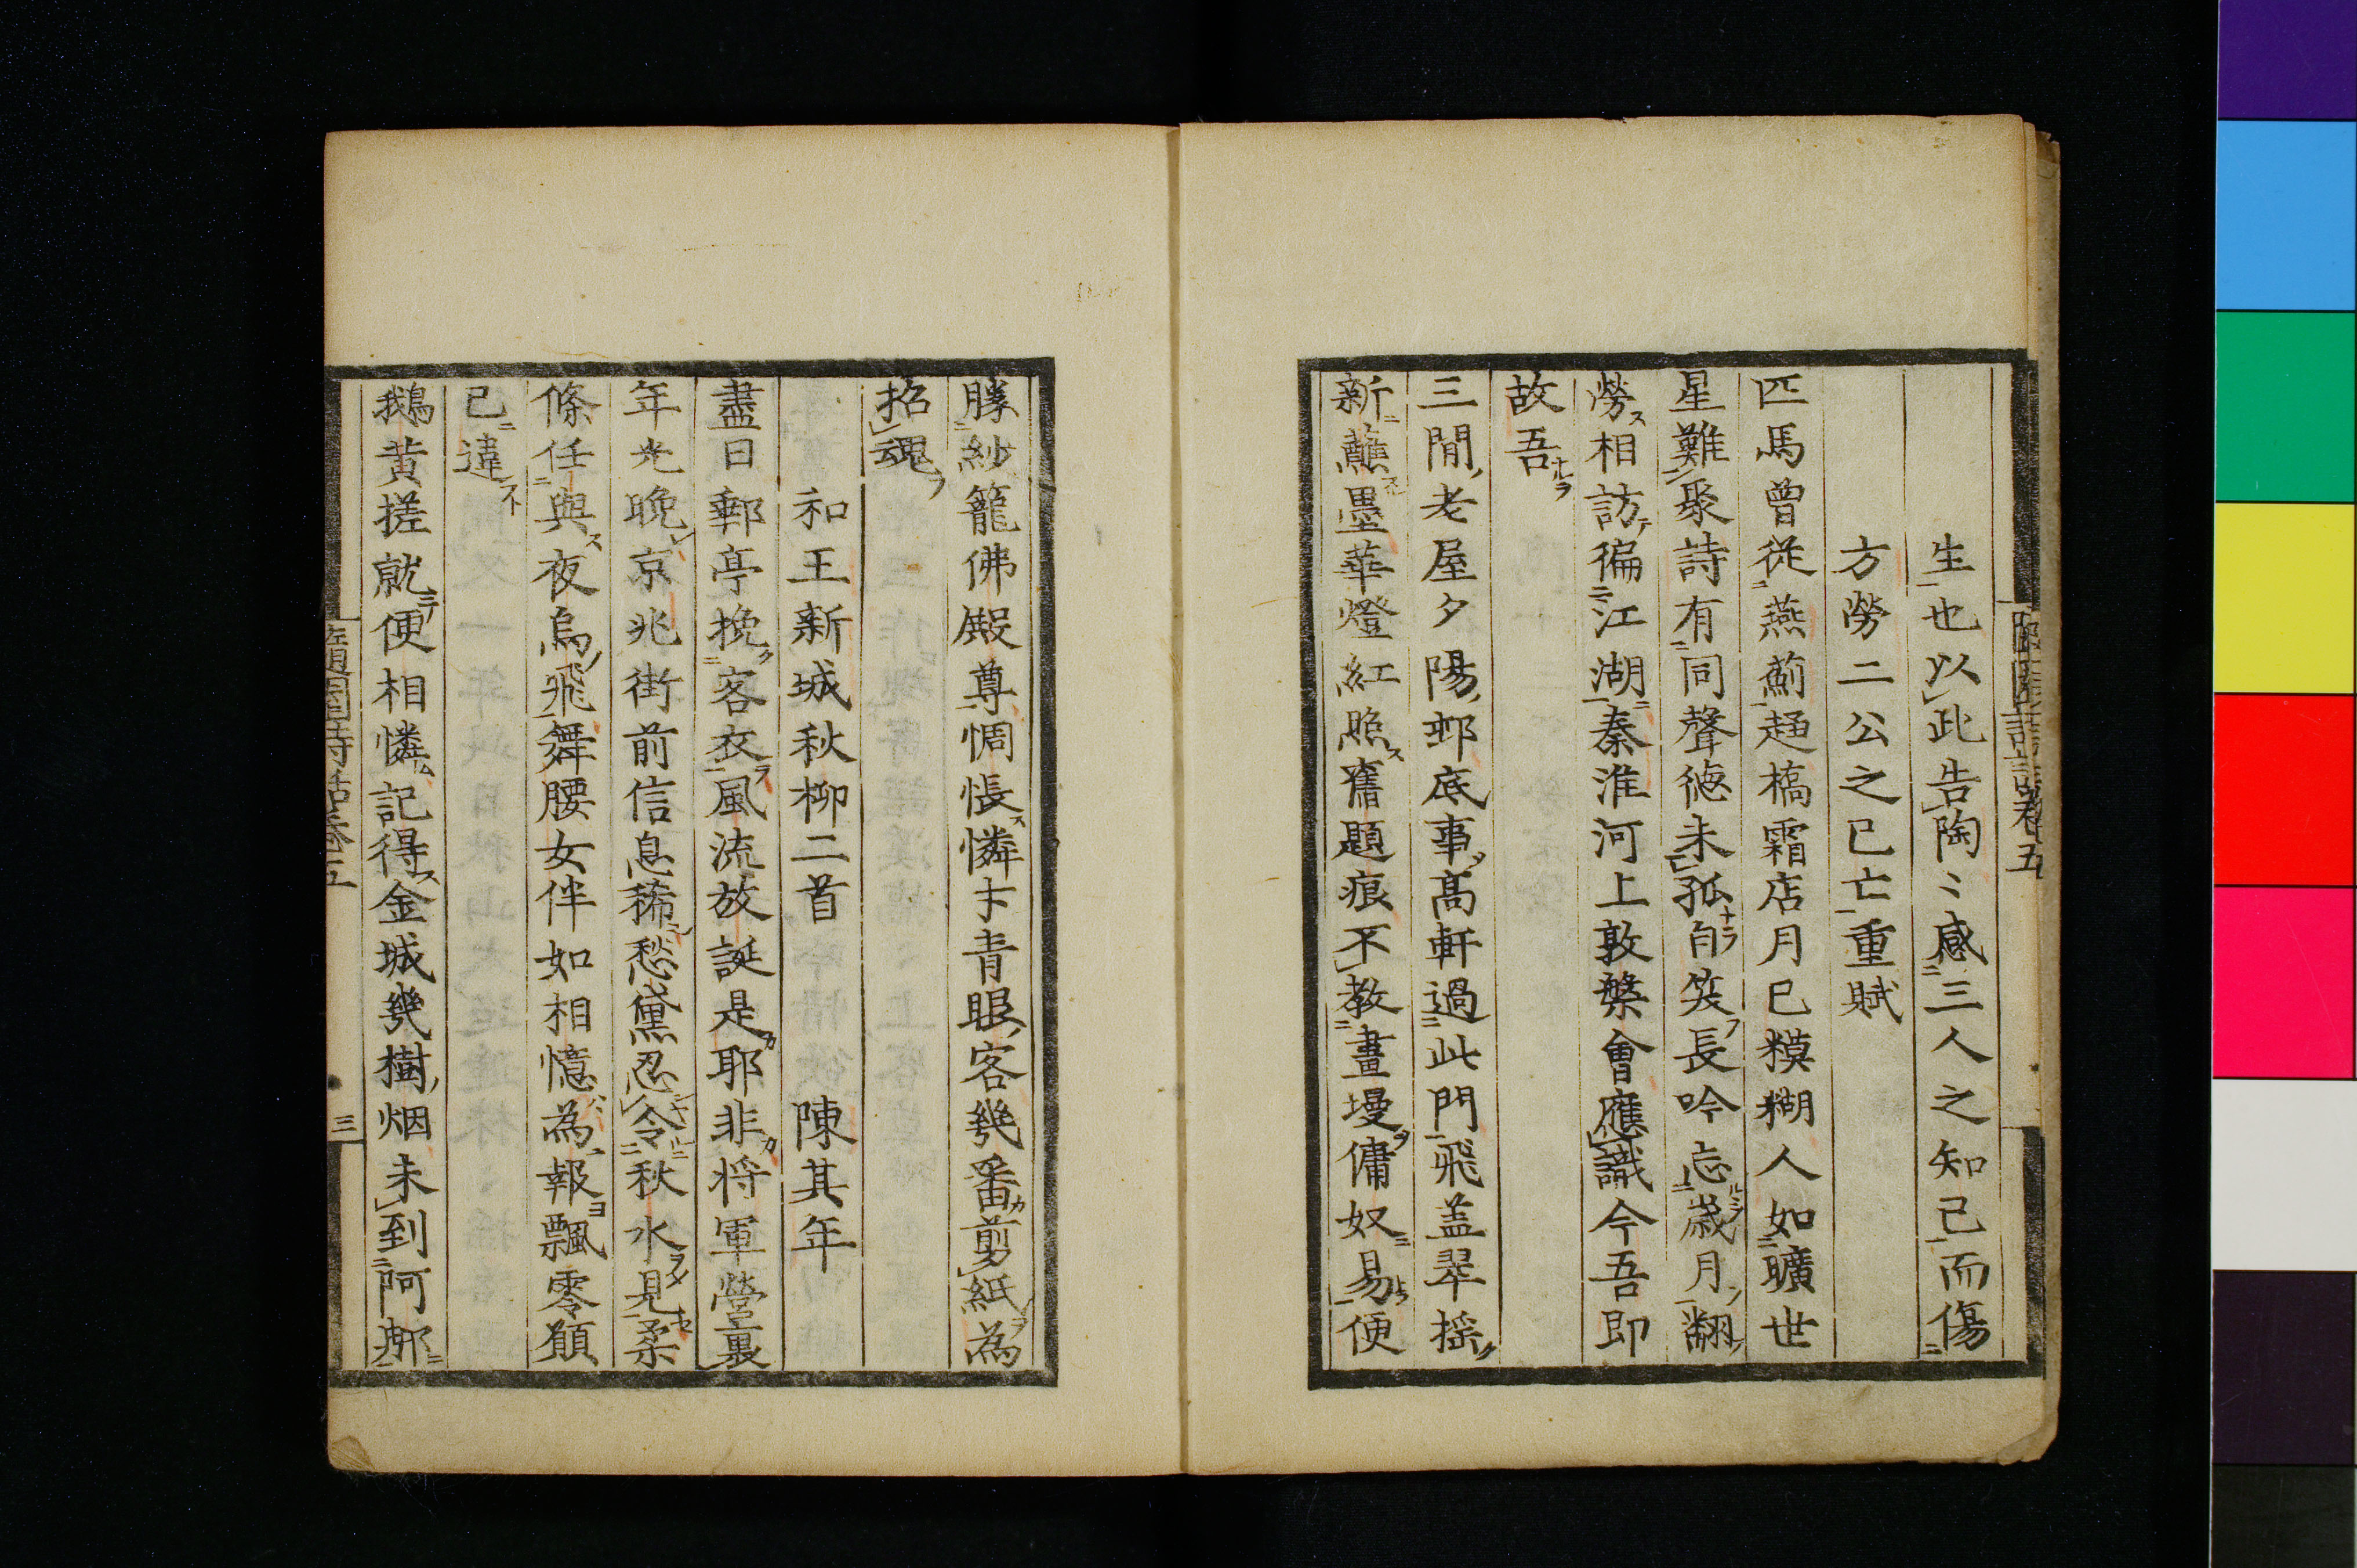 生也以此告陶〻感三人之知己而傷
方勞二公之已亡重賦
匹馬曾從燕薊趍橋霜店月已糢糊人如曠世
星難聚詩有同聲徳未孤自笑長吟忘歳月翻
勞相訪徧江湖秦淮河上敦槃會應識今吾即
故吾
三閒老屋夕陽邨底事髙軒過此門飛盖翠揺
新蘸墨華燈紅照舊題痕不教畫墁傭奴易便
勝紗籠佛殿尊惆悵憐才青眼客幾番剪紙為
招魂
和王新城秋柳二首 陳其年
盡日郵亭挽客衣風流放誕是耶非将軍營裏
年光晩京兆街前信息稀愁黛忍令秋水見柔
條任與夜烏飛舞腰女伴如相憶為報飄零願
已違
鵝黄搓就便相憐記得金城幾樹烟未到阿那
隨園詩話卷五
三